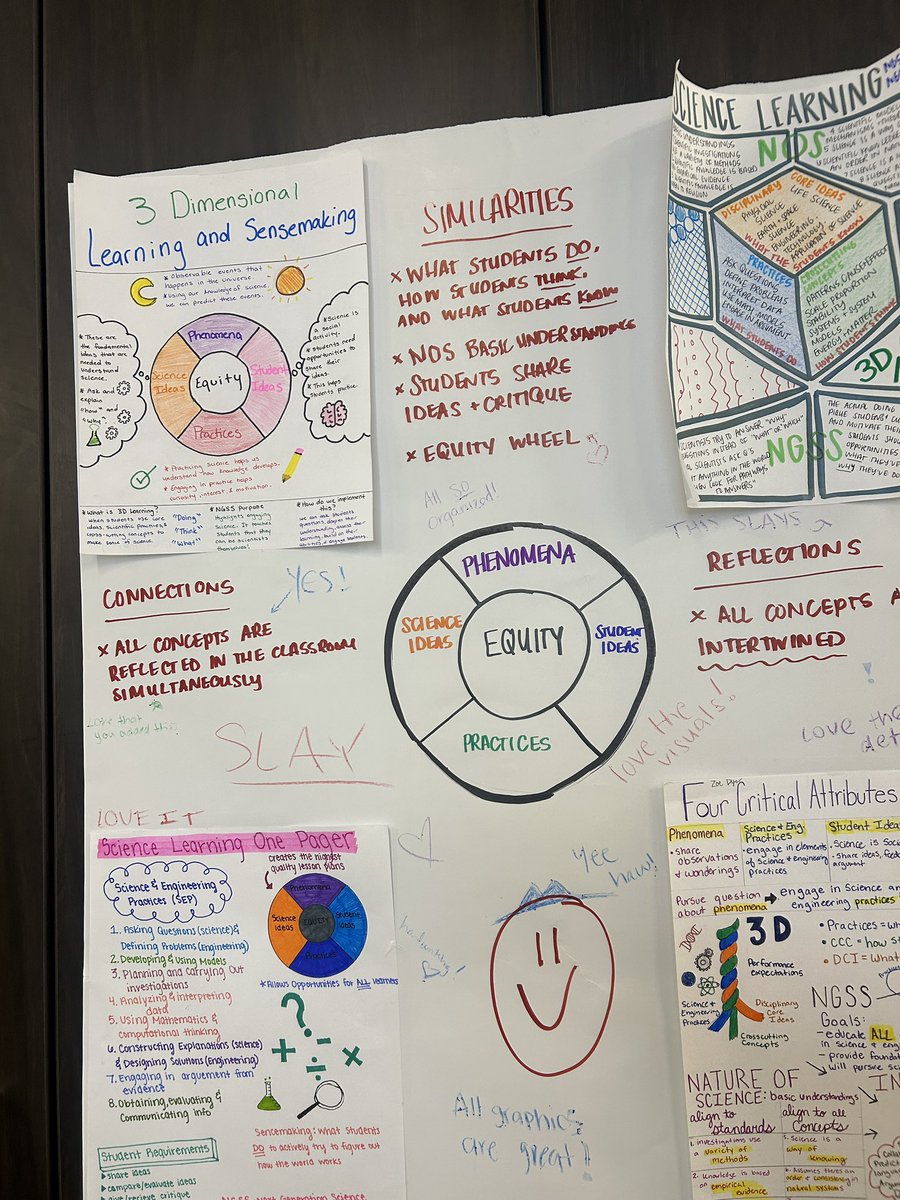 3 Dimensional
Learning and Sensemaking
* Observable events that
happens in the universe.
* Using our knowledge of science,
we can predict these events.
* These are
the fundamental
ideas that are
needed to
understand
science.
* Ask and
explain
"how" and
"why"
Phenomena
Science
Ideas
Equity
Student
Ideas
Practices
* Science is
a social
activity.
* Students need
opportunities to
share their
ideas.
* This helps
students practice.
* Practicing science helps us
understand how knowledge develops.
* Engaging in practice helps
curiosity, interest, & motivation.
* What is 3D Learning?
When students use core
ideas, scientific practices, &
cross-cutting concepts to
make sense of science.
"Doing"
"Think"
"What"
* NGSS Purpose
Highlights engaging
Science. It teaches
Students that they
can be scientists
themselves!
* How do we implement
this?
SIMILARITIES
x WHAT STUDENTS DO,
HOW STUDENTS THINK,
AND WHAT STUDENTS KNOW
x NOS BASIC UNDERSTANDINGS
x STUDENTS SHARE
IDEAS + CRITIQUE
x EQUITY WHEEL
All SO
organized!
SCIENCE LEARNING
NOS
DISCIPLINARY
CORE IDEAS
PHYSICAL
SCIENCE
LIFE SCIENCE
EARTH + SPACE
SCIENCE
ENGINEERING
TECHNOLOGY
APPLICATION OF SCIENCE
WHAT THE STUDENTS KNOW
PRACTICES
ASK QUESTIONS
DEFINE PROBLEMS
INTERPRET DATA
USE MATH + MODEL
ENGAGE IN ARGUMENT
WHAT STUDENTS DO
CONCEPTS
PATTERNS CAUSE + EFFECT
SCALE PROPORTION
STABILITY
SYSTEMS + SYSTEM
MODELS
ENERGY + MATTER
HOW STUDENTS THINK
3D
NGSS
SCIENTISTS TRY TO ANSWER "WHY"
QUESTIONS INSTEAD OF "WHAT" OR "WHICH"
THE ACTUAL DOING
AND MOTIVATE THEIR
STUDENTS SHOULD
OPPORTUNITIES
WHAT THEY'VE
WHY THEY'VE
THIS SLAYS
CONNECTIONS
YES!
x ALL CONCEPTS ARE
REFLECTED IN THE CLASSROOM
SIMULTANEOUSLY
Love that
you added this
SLAY
LOVE IT
PHENOMENA
SCIENCE
IDEAS
EQUITY
STUDENT
IDEAS
PRACTICES
REFLECTIONS
x ALL CONCEPTS
INTERTWINED
!
love the
visuals!
LOVE the
Science Learning One Pager
Science &
Engineering
Practices (SEP)
creates the highest
quality lesson plans
Phenomena
Science
ideas
EQUITY
Student
ideas
Practices
* Allows Opportunities for ALL learners
1. Asking Questions (science) &
Defining Problems (Engineering)
2. Developing & Using Models
3. Planning and Carrying Out
investigations
4. Analyzing & interpreting
data
5. Using Mathematics &
computational thinking
6. Constructing Explanations (science)
& Designing Solutions (Engineering)
7. Engaging in arguement from
evidence
8. Obtaining, evaluating &
Communicating Info
Sencemaking: what students
DO to actively try to figure out
how the world works
Student Requirements
share ideas
compare/evaluate ideas
give/recieve critique
Yee
haw!
All graphics
are great!
Four Critical Attributes
Phenomena
• share
observations
& wonderings
Science & Eng.
Practices
• engage in elements
of science & engineering
practices
Student Ideas
• Science is Social
• share ideas, feed
argument
Pursue question
about phenomena → engage in science an
engineering practices
3D
Performance
expectations
Science &
Engineering
Practices
Disciplinary
Core
Ideas
Crosscutting
Concepts
• Practices = wh
• CCC = how st
• DCI = What
NGSS
Goals:
- educate ALL
in science & eng
- provide founda
- will pursue sc
NATURE OF
SCIENCE: basic understandings
align to
standards
align to all
Concepts
1. investigations use
a variety of
methods
2. Knowledge is based on
empirical
evidence
5. Science is a
way of
knowing
6. Assumes there's an
order & consistency in
natural systems